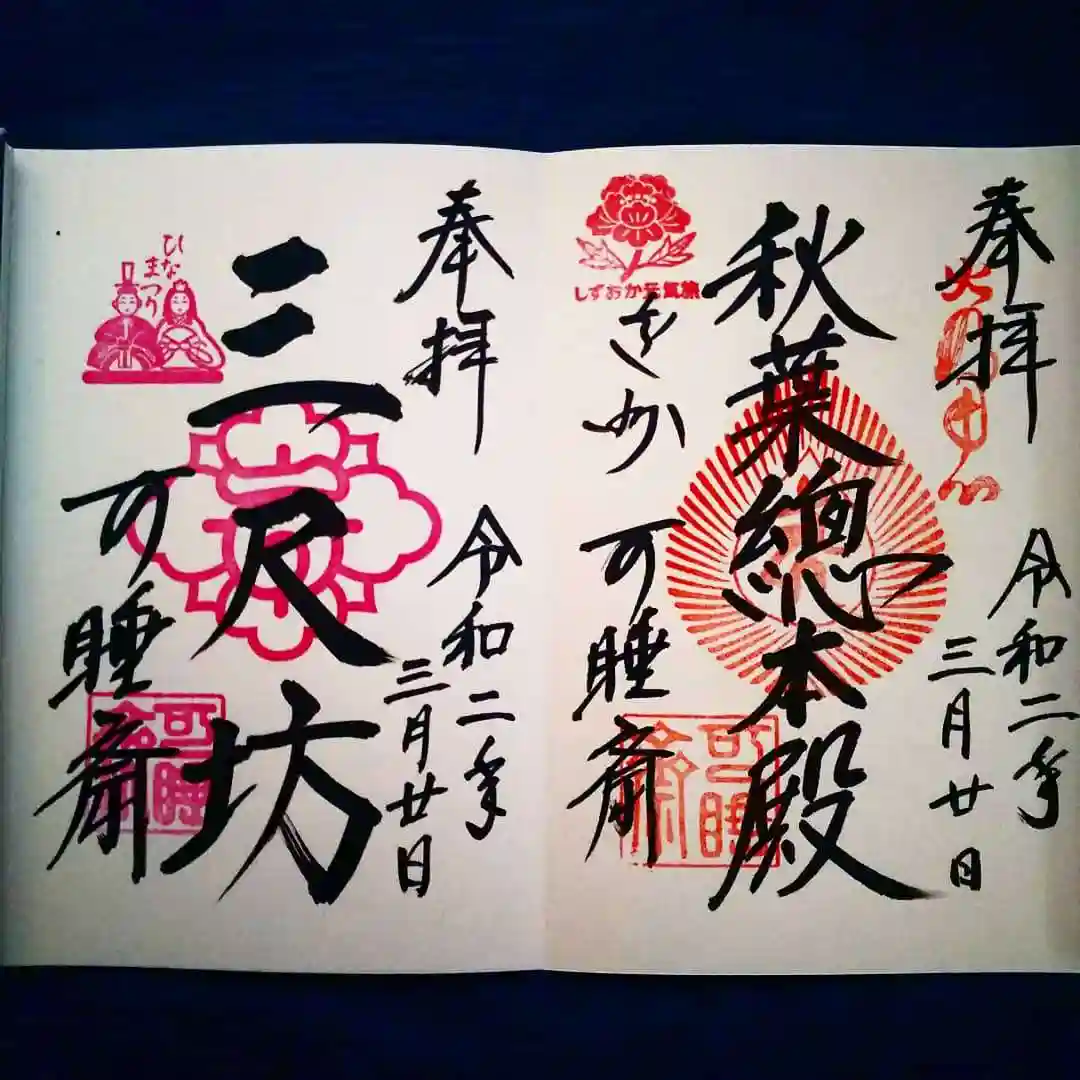 奉拝
令和二年
三月廿日
秋葉總本殿
しずおか元気旅
可睡斎
可睡
奉拝
令和二年
三月廿日
三尺坊
ひな
まつり
可睡斎
可睡